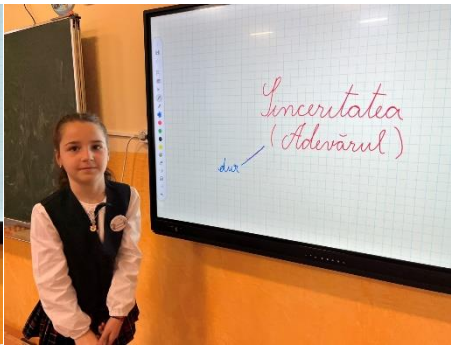 Sinceritatea
(Adevărul)
dur